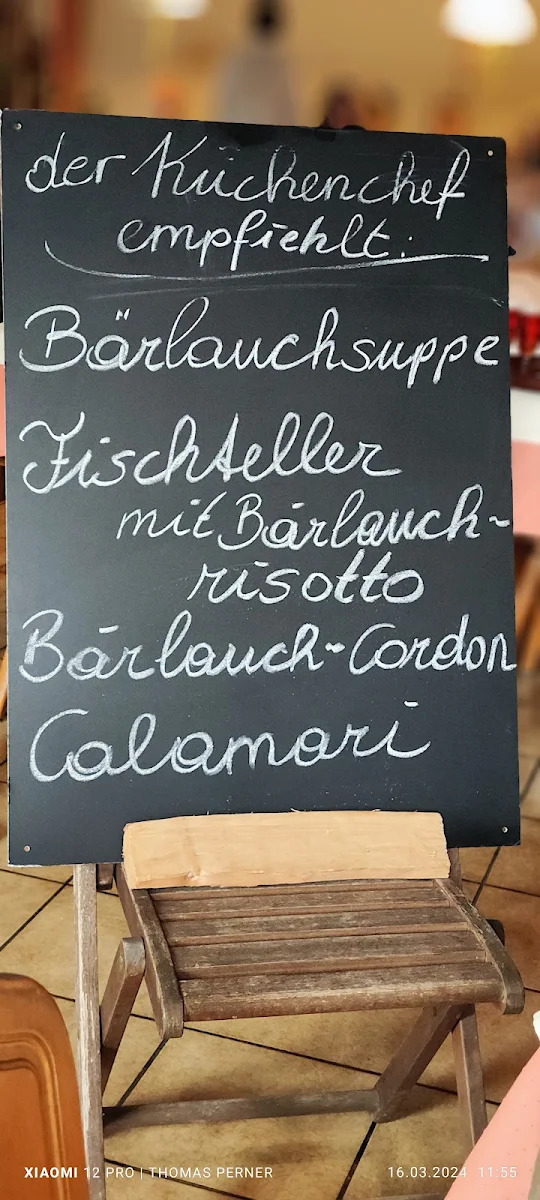 der Küchenchef
empfiehlt:
Bärlauchsuppe
Fischteller
mit Bärlauch-
risotto
Bärlauch-Cordon
Calamari
XIAOMI 12 PRO | THOMAS PERNER
16.03.2024 11:55